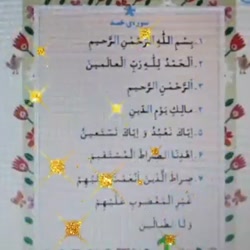 سوره‌ی حمد
۱. بِسْمِ اللَّهِ الرَّحْمٰنِ الرَّحیمِ
۲. اَلْحَمْدُ لِلّٰهِ رَبِّ الْعالَمینَ
۳. اَلرَّحْمٰنِ الرَّحیمِ
۴. مالِكِ یَوْمِ الدّینِ
۵. اِیّاكَ نَعْبُدُ وَ اِیّاكَ نَسْتَعینُ
۶. اِهْدِنَا الصِّراطَ الْمُسْتَقیمَ
۷. صِراطَ الَّذینَ اَنْعَمْتَ عَلَیْهِمْ
غَیْرِ الْمَغْضوبِ عَلَیْهِمْ
وَ لَا الضّالّینَ